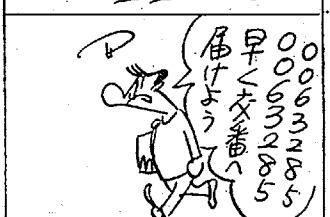 ００６３２８５
００６３２８５
早く交番へ
届けよう